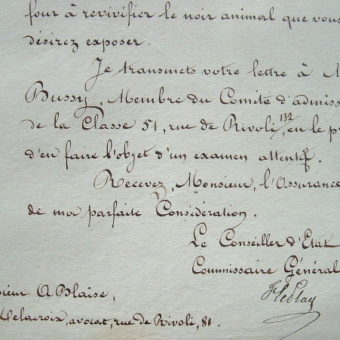 four à revivifier le noir animal que vous
désirez exposer.
Je transmets votre lettre à M
Bussy, Membre du Comité d'admiss
de la Classe 51, rue de Rivoli, 132, en le pr
d'en faire l'objet d'un examen attentif.
Recevez, Monsieur, l'Assurance
de ma parfaite Considération.
Le Conseiller d'Etat
Commissaire Général
F. Le Play
sieur A. Blaise,
Delacroix, avocat, rue de Rivoli, 81.